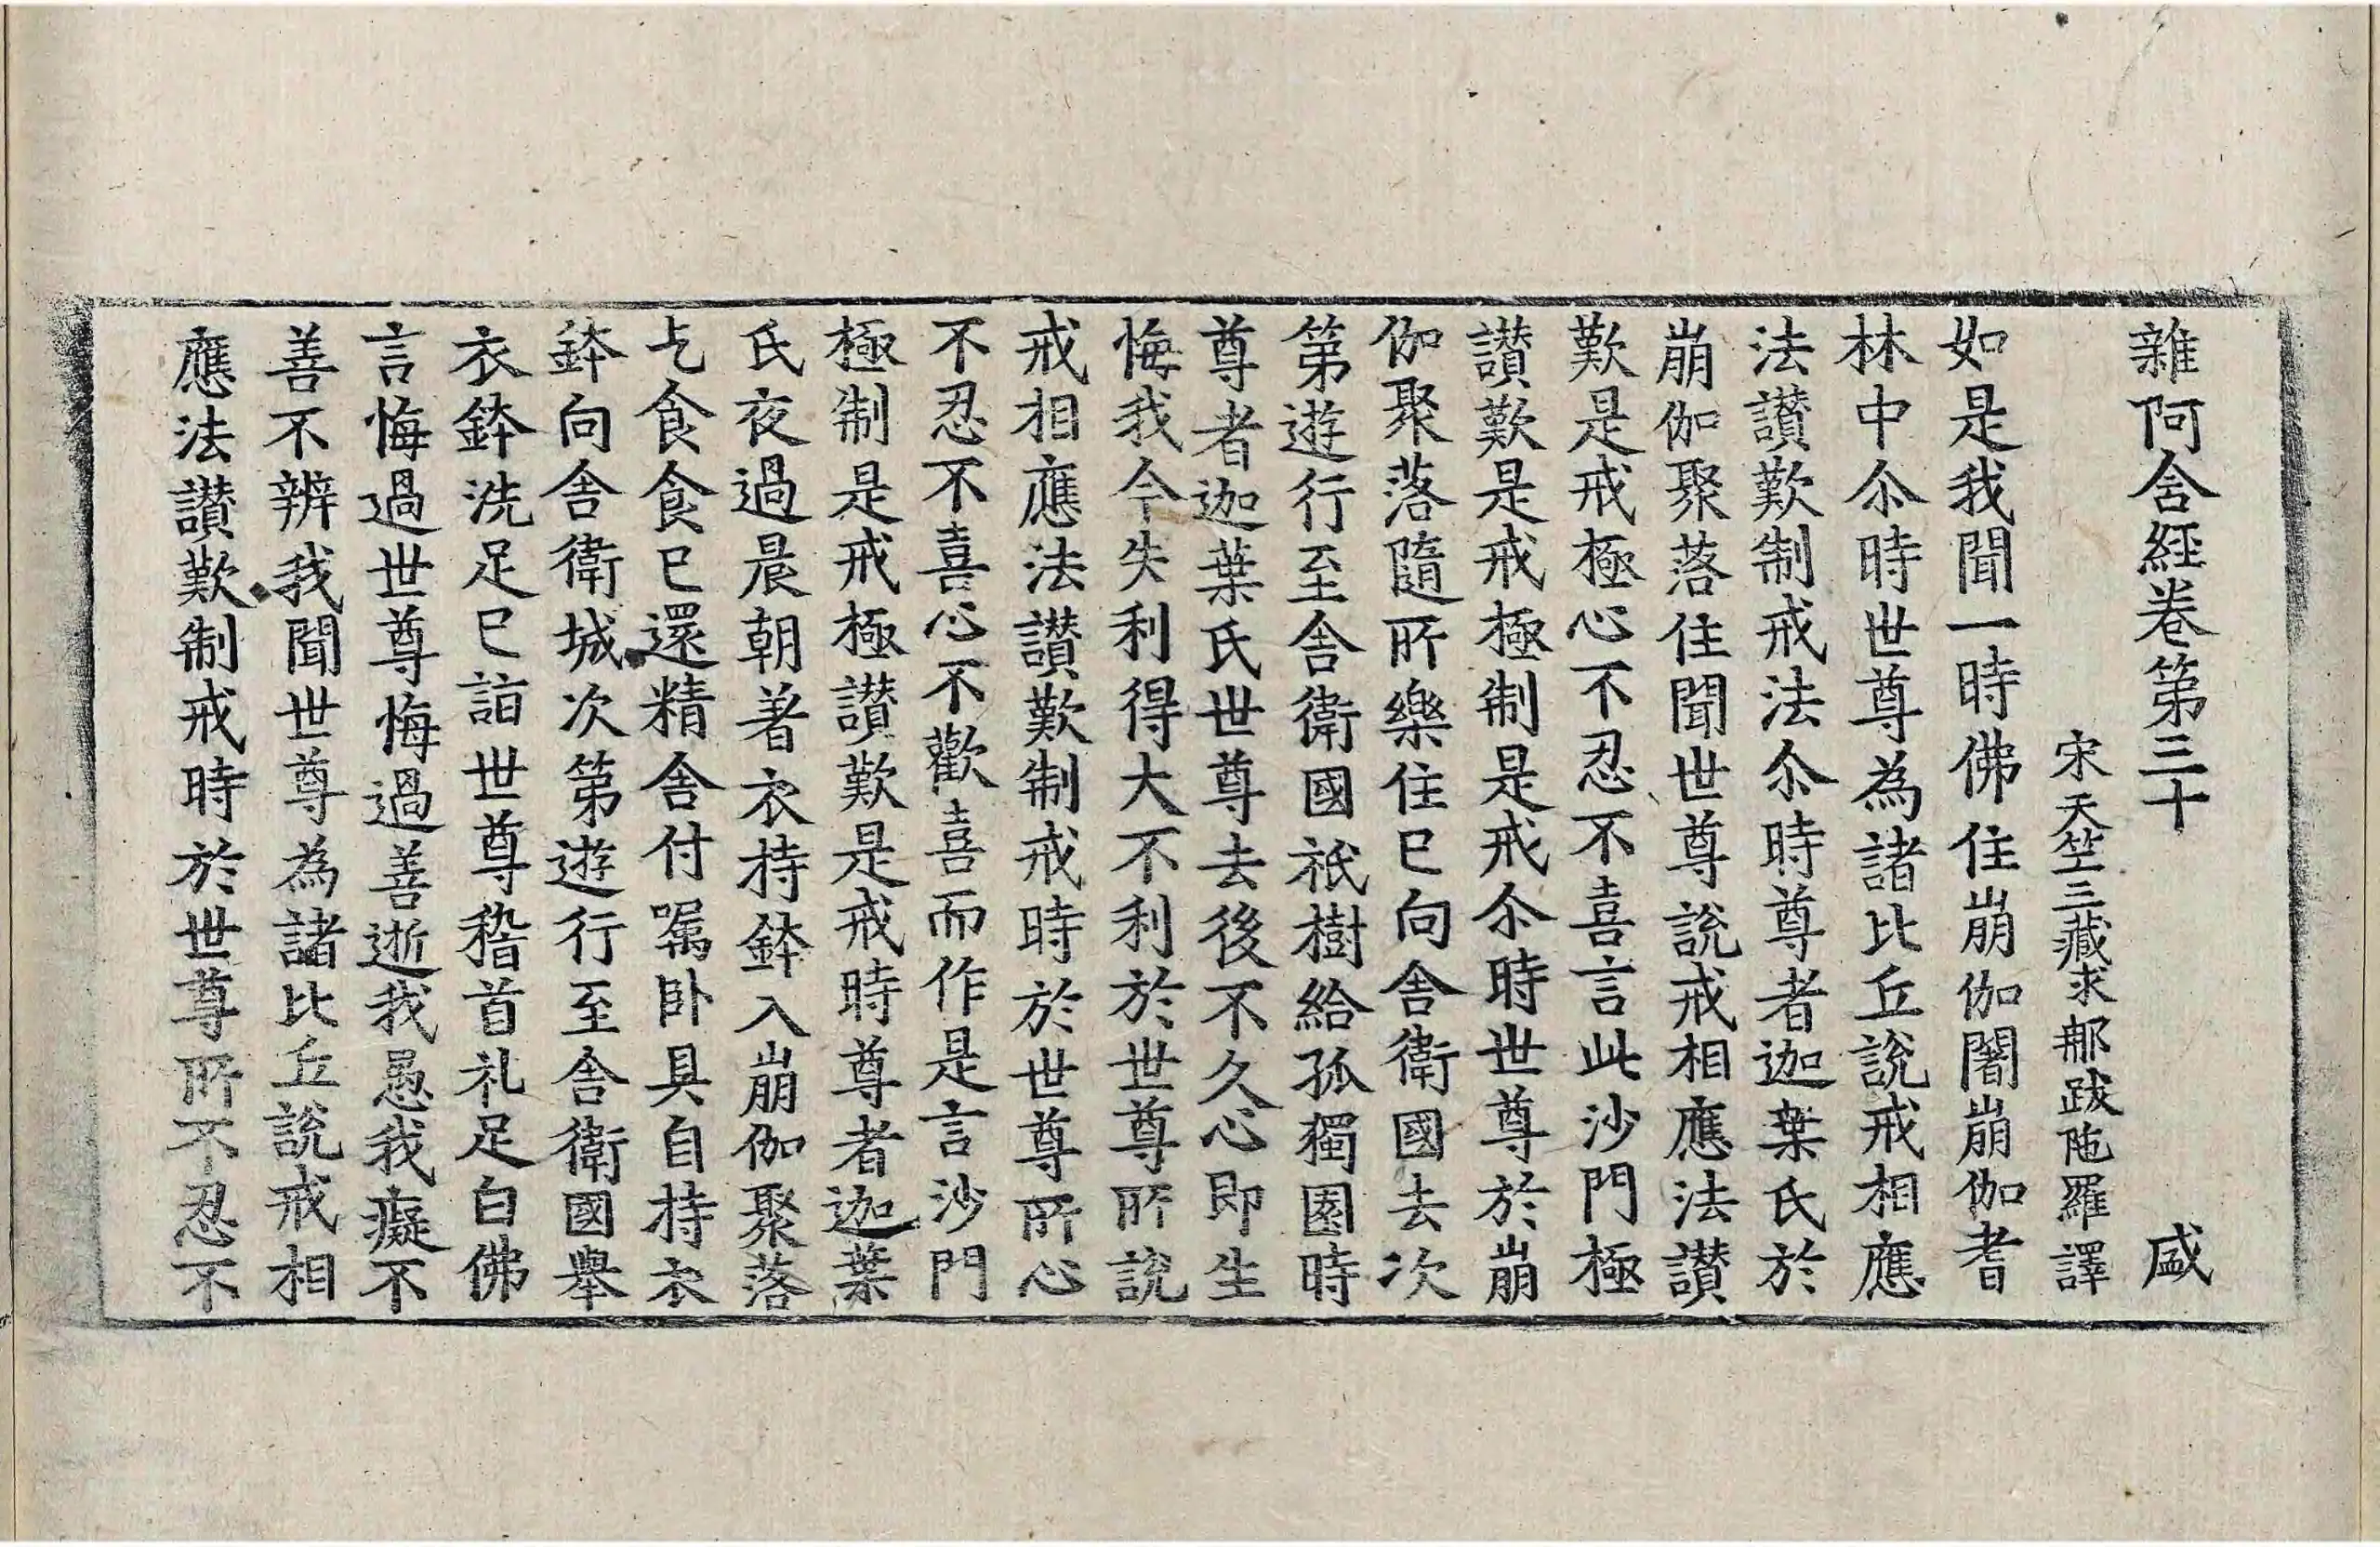 雜阿含經卷第三十　盛
宋天竺三藏求那跋陁羅譯
如是我聞一時佛住崩伽闍崩伽耆
林中尒時世尊為諸比丘說戒相應
法讃歎制戒法尒時尊者迦葉氏於
崩伽聚落住聞世尊說戒相應法讃
歎是戒極心不忍不喜言此沙門極
讃歎是戒極制是戒尒時世尊於崩
伽聚落隨所樂住已向舍衛國去次
第遊行至舍衛國祇樹給孤獨園時
尊者迦葉氏世尊去後不久心即生
悔我今失利得大不利於世尊所說
戒相應法讃歎制戒時於世尊所心
不忍不喜心不歡喜而作是言沙門
極制是戒極讃歎是戒時尊者迦葉
氏夜過晨朝著衣持鉢入崩伽聚落
乞食食已還精舍付嘱卧具自持衣
鉢向舍衛城次第遊行至舍衛國舉
衣鉢洗足已詣世尊稽首礼足白佛
言悔過世尊悔過善逝我愚我癡不
善不辨我聞世尊為諸比丘說戒相
應法讃歎制戒時於世尊所不忍不